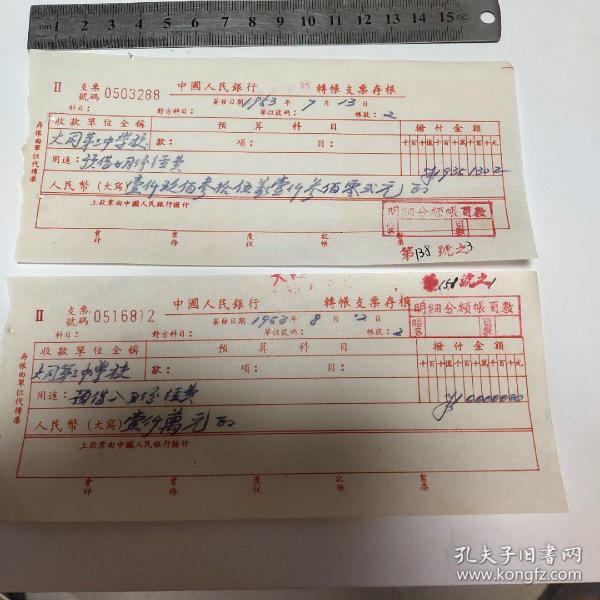 1 2 3 4 5 6 7 8 9 10 11 12 13 14 15
II 支票號碼 0503288 中國人民銀行 轉帳支票存根
簽發日期 1953 年 7 月 13 日
科目： 對方科目： 單位號碼： 帳號：2
收款單位全稱 預算科目 撥付金額
大同第二中學校 款： 項： 目： 千百十億千百十萬千百十元
用途：預借七月份經費 ¥19351302
人民幣（大寫）壹仟玖佰叁拾伍萬壹仟叁佰零弍元正
上款業由中國人民銀行撥付
明細分類帳頁數
帳號 頁數
會計 業務 覆核 記帳 製票
存根由單位代傳票
第138號之3
第158號之1
II 支票號碼 0516812 中國人民銀行 轉帳支票存根
明細分類帳頁數
簽發日期 1953 年 8 月 2 日
科目： 對方科目： 單位號碼： 帳號：2
收款單位全稱 預算科目 撥付金額
大同第二中學校 款： 項： 目： 千百十億千百十萬千百十元
用途：預借八月份經費 ¥10000000
人民幣（大寫）壹仟萬元正
上款業由中國人民銀行撥付
會計 業務 覆核 記帳 製票
存根由單位代傳票
孔夫子旧书网
www.kongfz.com